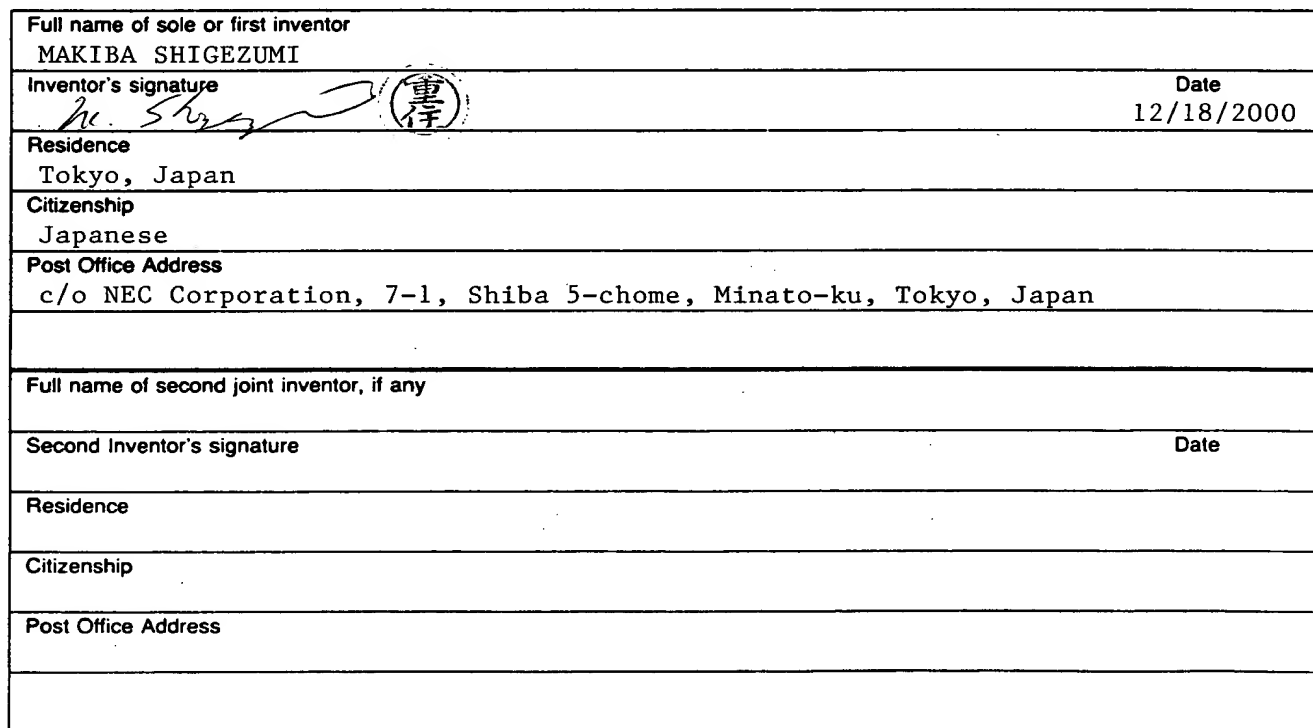 Full name of sole or first inventor
MAKIBA SHIGEZUMI
Inventor's signature
Date
12/18/2000
Residence
Tokyo, Japan
Citizenship
Japanese
Post Office Address
c/o NEC Corporation, 7-1, Shiba 5-chome, Minato-ku, Tokyo, Japan
Full name of second joint inventor, if any
Second Inventor's signature
Date
Residence
Citizenship
Post Office Address